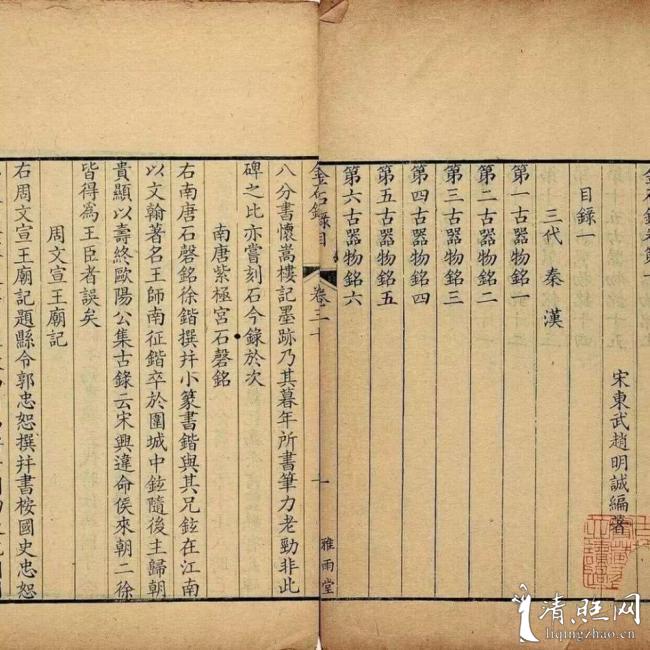 金石錄卷第一
目錄一
宋東武趙明誠編著
三代 秦 漢
第一古器物銘一
第二古器物銘二
第三古器物銘三
第四古器物銘四
第五古器物銘五
第六古器物銘六
金石錄 卷三十
雅雨堂
八分書懷嵩樓記墨跡乃其暮年所書筆力老勁非此
碑之比亦嘗刻石今錄於次
南唐紫極宮石磬銘
右南唐石磬銘徐鍇撰并小篆書鍇與其兄鉉在江南
以文翰著名王師南征鍇卒於圍城中鉉隨後主歸朝
貴顯以壽終歐陽公集古錄云宋興違命侯來朝二徐
皆得為王臣者誤矣
周文宣王廟記
右周文宣王廟記題縣令郭忠恕撰并書桉國史忠恕
清照网
liqingzhao.cn